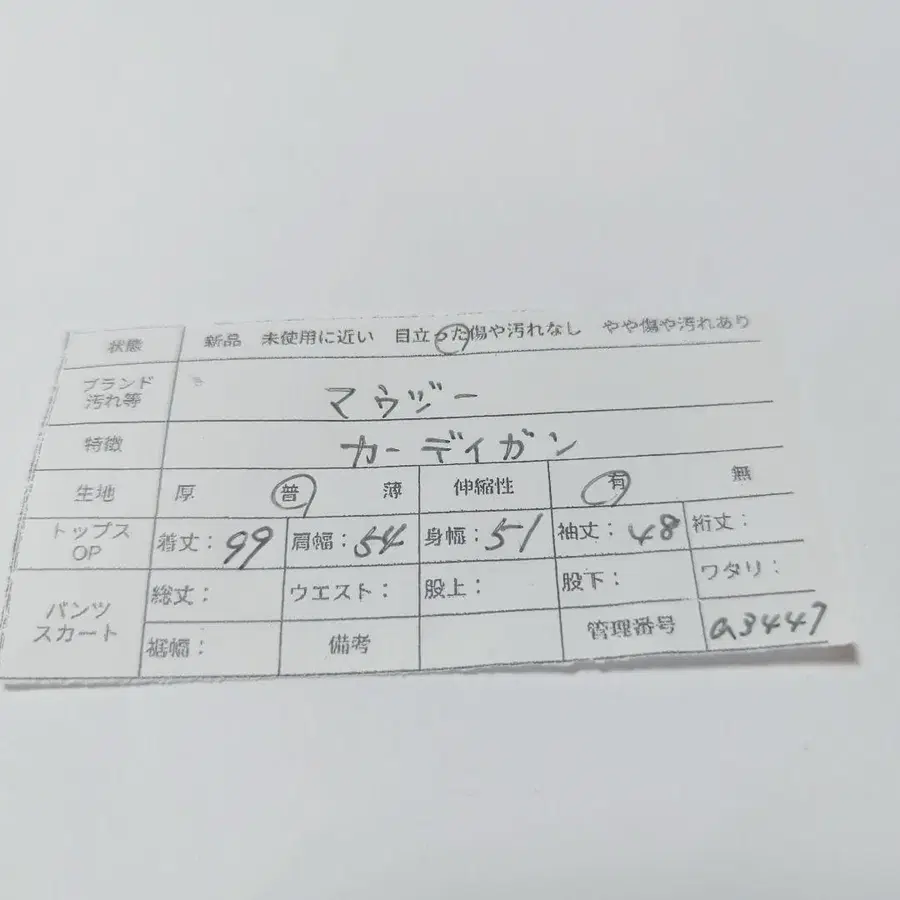 状態 新品 未使用に近い 目立った傷や汚れなし やや傷や汚れあり
ブランド 汚れ等 マウジー
特徴 カーディガン
生地 厚 普 薄 伸縮性 有 無
トップス OP 着丈：99 肩幅：54 身幅：51 袖丈：48 裄丈：
パンツ スカート 総丈： ウエスト： 股上： 股下： ワタリ：
裾幅： 備考 管理番号 a3447